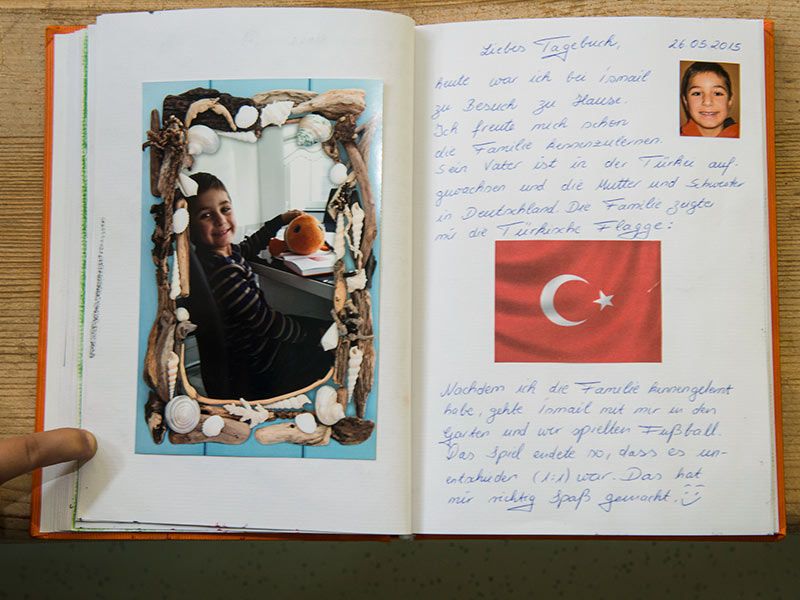 Liebes Tagebuch, 26.05.2015
heute war ich bei ismail
zu Besuch zu Hause.
Ich freute mich schon
die Familie kennzulernen.
Sein Vater ist in der Türkei auf-
gewachsen und die Mutter und Schwester
in Deutschland. Die Familie zeigte
mir die Türkische Flagge:
Nachdem ich die Familie kennengelernt
habe, gehte ismail mit mir in den
Garten und wir spielten Fußball.
Das Spiel endete so, dass es un-
entschieden (1:1) war. Das hat
mir richtig Spaß gemacht.